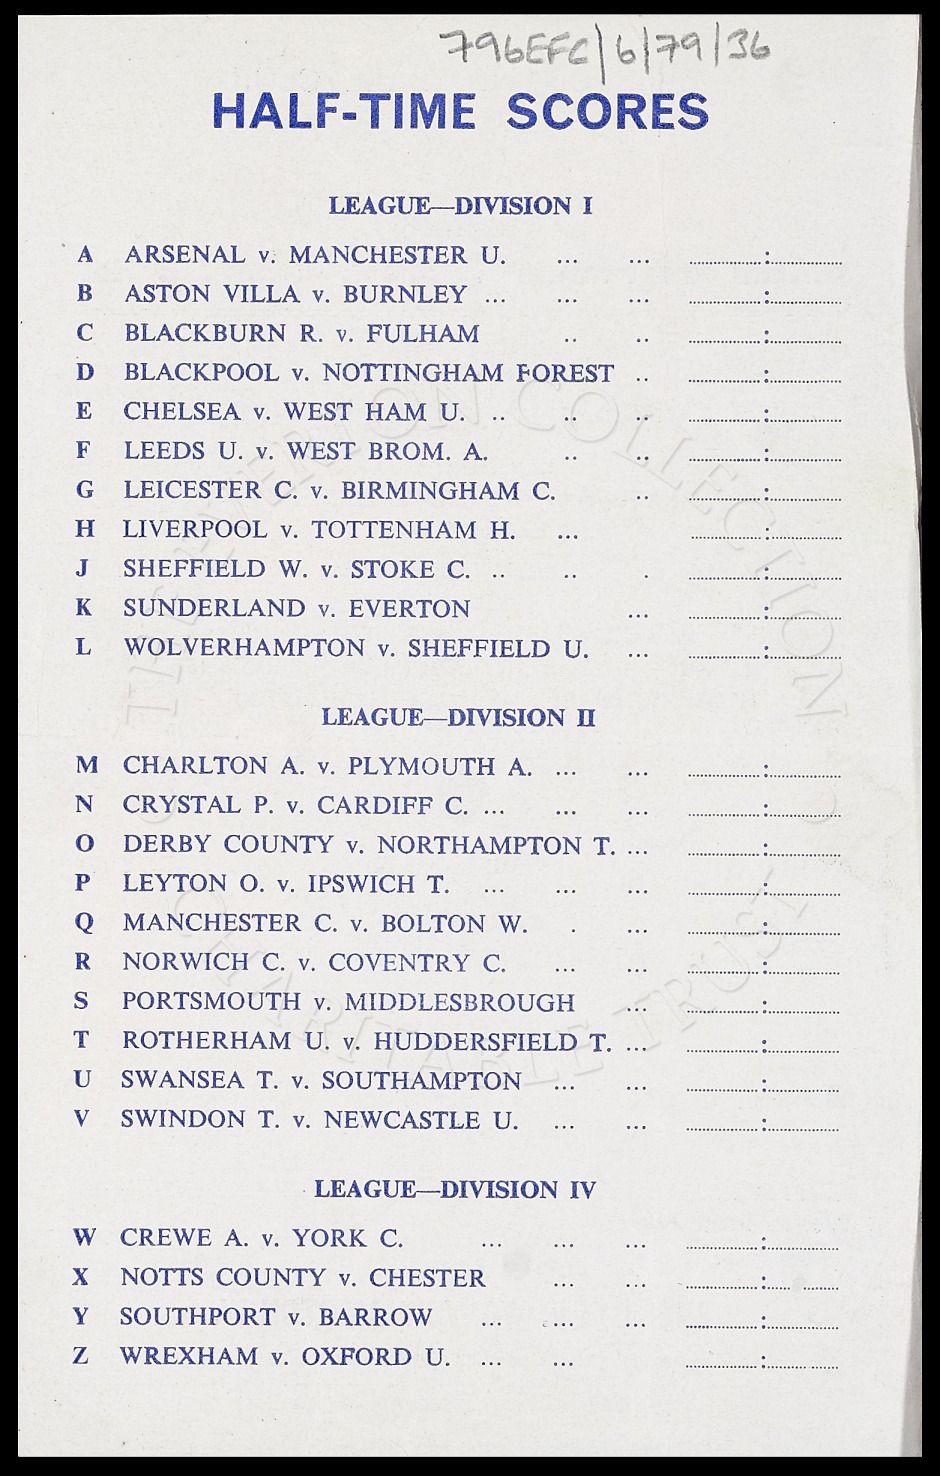 796EFC/6/79/36
HALF-TIME SCORES
LEAGUE—DIVISION I
A ARSENAL v. MANCHESTER U. ... ... ..................:..................
B ASTON VILLA v. BURNLEY ... ... ... ..................:..................
C BLACKBURN R. v. FULHAM .. .. ..................:..................
D BLACKPOOL v. NOTTINGHAM FOREST .. ..................:..................
E CHELSEA v. WEST HAM U. .. .. .. ..................:..................
F LEEDS U. v. WEST BROM. A. .. .. ..................:..................
G LEICESTER C. v. BIRMINGHAM C. .. ..................:..................
H LIVERPOOL v. TOTTENHAM H. ... ..................:..................
J SHEFFIELD W. v. STOKE C. .. .. . ..................:..................
K SUNDERLAND v. EVERTON ... ..................:..................
L WOLVERHAMPTON v. SHEFFIELD U. ... ..................:..................
LEAGUE—DIVISION II
M CHARLTON A. v. PLYMOUTH A. ... ... ..................:..................
N CRYSTAL P. v. CARDIFF C. ... ... ... ..................:..................
O DERBY COUNTY v. NORTHAMPTON T. ... ..................:..................
P LEYTON O. v. IPSWICH T. ... ... ... ..................:..................
Q MANCHESTER C. v. BOLTON W. . ... ..................:..................
R NORWICH C. v. COVENTRY C. ... ... ..................:..................
S PORTSMOUTH v. MIDDLESBROUGH ... ..................:..................
T ROTHERHAM U. v. HUDDERSFIELD T. ... ..................:..................
U SWANSEA T. v. SOUTHAMPTON ... ... ..................:..................
V SWINDON T. v. NEWCASTLE U. ... ... ..................:..................
LEAGUE—DIVISION IV
W CREWE A. v. YORK C. ... ... ... ..................:..................
X NOTTS COUNTY v. CHESTER ... ... ..................:..................
Y SOUTHPORT v. BARROW ... ... ... ..................:..................
Z WREXHAM v. OXFORD U. ... ... ..................:..................
THE EVERTON COLLECTION
CHARITABLE TRUST